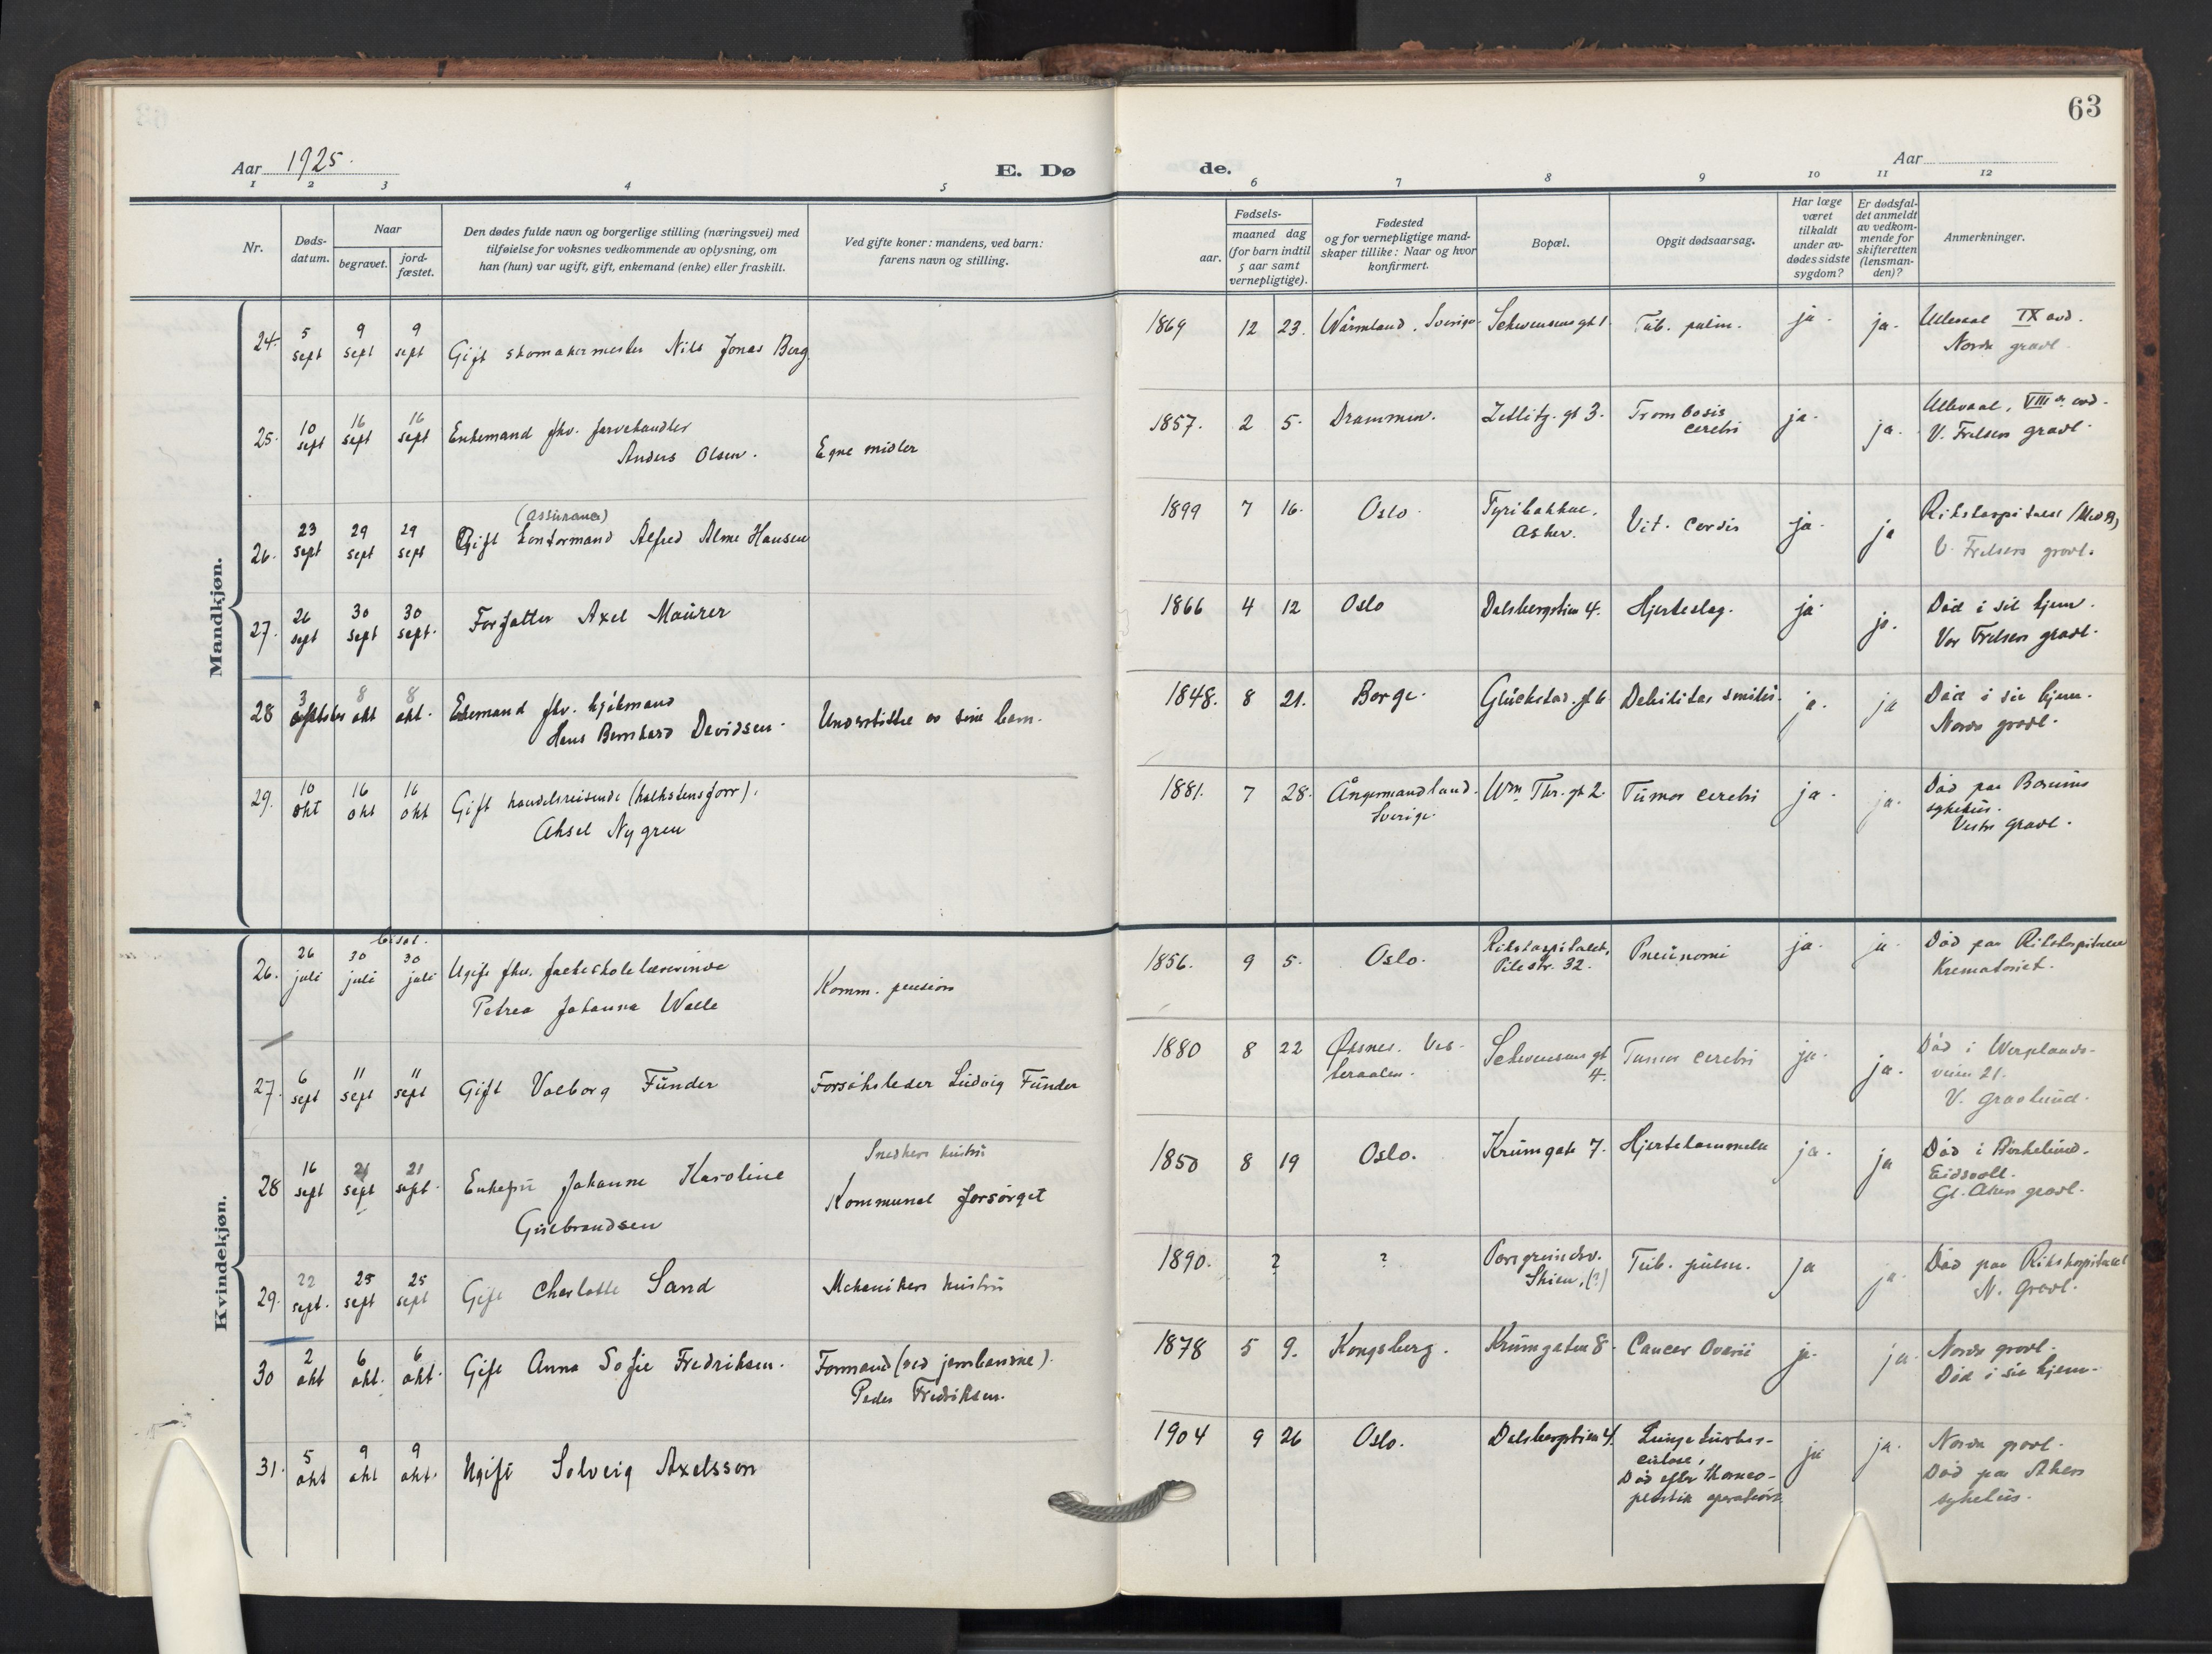 63
Aar 1925.
E. Dø
de.
Aar
1 2 3 4 5 6 7 8 9 10 11 12
Nr.
Døds-
datum.
Naar
begravet.
jord-
fæstet.
Den dødes fulde navn og borgerlige stilling (næringsvei) med
tilføielse for voksnes vedkommende av oplysning, om
han (hun) var ugift, gift, enkemand (enke) eller fraskilt.
Ved gifte koner: mandens, ved barn:
farens navn og stilling.
Fødsels-
aar.
maaned dag
(for barn indtil
5 aar samt
vernepligtige).
Fødested
og for vernepligtige mand-
skaper tillike: Naar og hvor
konfirmert.
Bopæl.
Opgit dødsaarsag.
Har læge
været
tilkaldt
under av-
dødes sidste
sygdom?
Er dødsfal-
det anmeldt
av vedkom-
mende for
skifteretten
(lensman-
den)?
Anmerkninger.
Mandkjøn.
24. 5 sept 9 sept 9 sept Gift skomakermester Nils Jonas Berg
1869 12 23. Wärmland. Sverige. Schwensens gt 1. Tub. pulm. ja. ja. Ullevaal IX avd.
Nordre gravl.
25. 10 sept 16 sept 16 sept Enkemand fhv. farvehandler
Anders Olsen. Egne midler
1857. 2 5. Drammen. Zetlitz. gt 3. Trombosis
cerebri ja. ja. Ullevaal, VIII avd.
V. Frelsers gravl.
26. 23 sept 29 sept 29 sept (assurance)
Gift kontormand Alfred Alme Hansen
1899 7 16. Oslo. Tyribakken,
Asker. Vit. cordis ja. ja Rikshospitalet (Med B)
V. Frelsers gravl.
27. 26 sept 30 sept 30 sept. Forfatter Axel Maurer
1866 4 12 Oslo Dalsbergstien 4. Hjerteslag. ja. ja. Død i sit hjem.
Vor Frelsers gravl.
28 3 oktober 8 okt 8 okt. Enkemand fhv. kjøkmand
Hans Bernhard Davidsen. Understøttet av sine barn.
1848. 8 21. Borge. Glückstad. gt 6 Debilitas senilis. ja. ja Død i sit hjem.
Nordre gravl.
29. 10 okt 16 okt 16 okt Gift handelsreisende (kalkstensforr).
Aksel Nygren
1881. 7 28. Ångermandland.
Sverige. Wm. Thr. gt 2. Tumor cerebri ja. ja. Død paa Bærums
sykehus.
Vestre gravl.
Kvindekjøn.
26. 26 juli 30 juli bisat. 30 juli Ugift fhv. folkeskolelærerinde
Petrea Johanna Walle Komm. pension
1856. 9 5. Oslo. Rikshospitalet,
Pilestr. 32. Pneunomi ja. ja. Død paa Rikshospitalet
Krematoriet.
27. 6 sept 11 sept 11 sept Gift Valborg Funder Forsøksleder Ludvig Funder
1880 8 22 Øksnes. Ves-
teraalen. Schwensens gt
4. Tumor cerebri ja. ja. Død i Wergelands-
veien 21.
V. gravlund.
28 16 sept 21 sept 21 sept. Enkefru Johanne Karoline
Gulbrandsen Snedkers hustru
Kommunal forsørget
1850 8 19 Oslo. Krumgate 7. Hjertelammelse ja. ja Død i Birkelund.
Eidsvoll.
Gl. Akers gravl.
29. 22 sept. 25 sept 25 sept Gift Charlotte Sand Mekanikers hustru
1890. ? ? Porsgrundsv.
Skien. (?) Tub. pulm. ja ja. Død paa Rikshospitalet
N. Gravl.
30 2 okt 6 okt. 6 okt. Gift Anna Sofie Fredriksen. Formand (ved jernbanene).
Peder Fredriksen.
1878 5 9. Kongsberg. Krumgaten 8. Cancer Ovarii ja. ja. Nordre gravl.
Død i sit hjem.
31. 5 okt 9 okt 9 okt. Ugift Solveig Axelsson
1904 9 26 Oslo. Dalsbergstien 4. Lungetuber-
culose,
Død efter thoraco-
plastik operation ja ja. Nordre gravl.
Død paa Akers
sykehus.